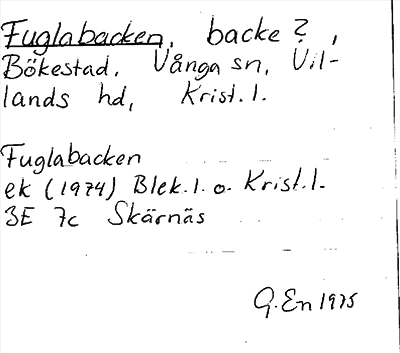 Fuglabacken, backe?,
Bökestad. Vånga sn, Vil-
lands hd, Krist. l.
Fuglabacken
ek (1974) Blek. l. o. Krist. l.
3E 7c Skärnäs
G. En 1975